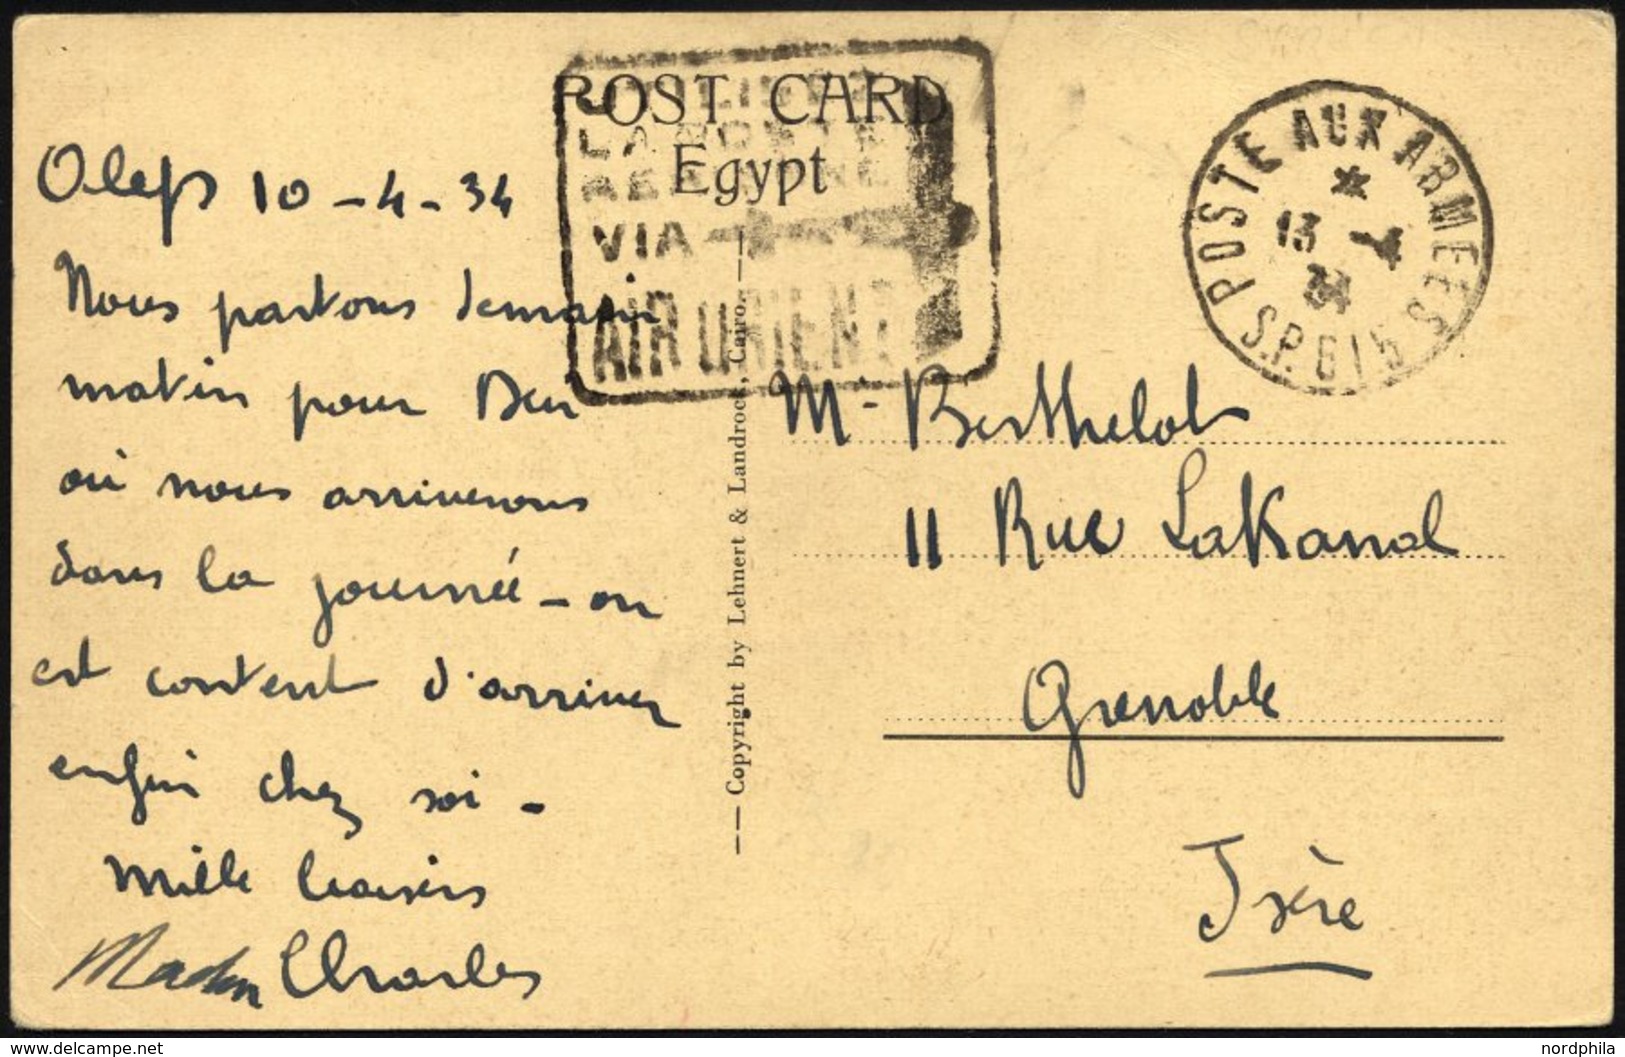 POST CARD
Egypt
LA
VIA
AIR ORIENT
POSTE AUX ARMEES
*
13 -4
34
S.P. 615
Alep 10-4-34
Nous partons demain
matin pour Deir
où nous arriverons
dans la journée - on
est content d'arriver
enfin chez soi -
Mille baisers
Charles
—— Copyright by Lehnert & Landrock, Cairo. ——
Mr Berthelot
11 Rue Lakanal
Grenoble
Isère
delcampe.net
nordphila